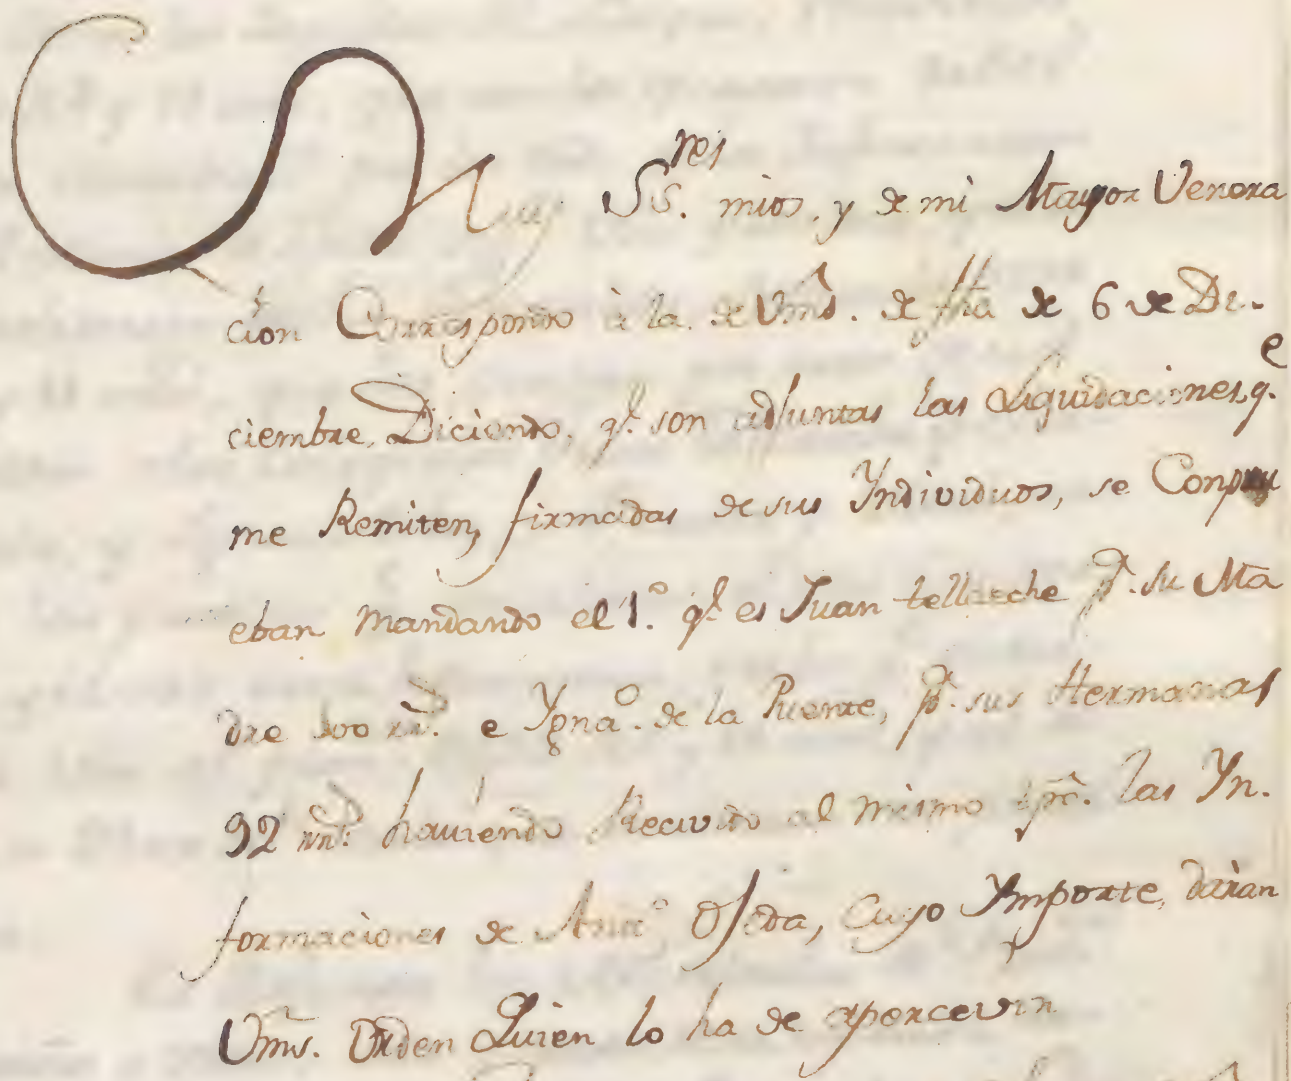 Muy Ss.res mios, y de mi Mayor Venera
cion Correspondo à la de Vmds. de fha de 6 de Di-
ciembre, Diciendo, q.e son adjuntas las Liquidaciones, q.e
me Remiten, firmadas de sus Yndividuos, se
eban mandando el 1.o q.e es Juan tellaeche p.a su Ma
dre 300 rr.s e Ygna.o de la Puente, p.a sus Hermanas
92 rr.s haviendo Recivido al mismo tpo. las Yn-
formaciones de Ant.o Ojeda, Cuyo Ymporte, daràn
Vms. Orden Quien lo ha de apercevir